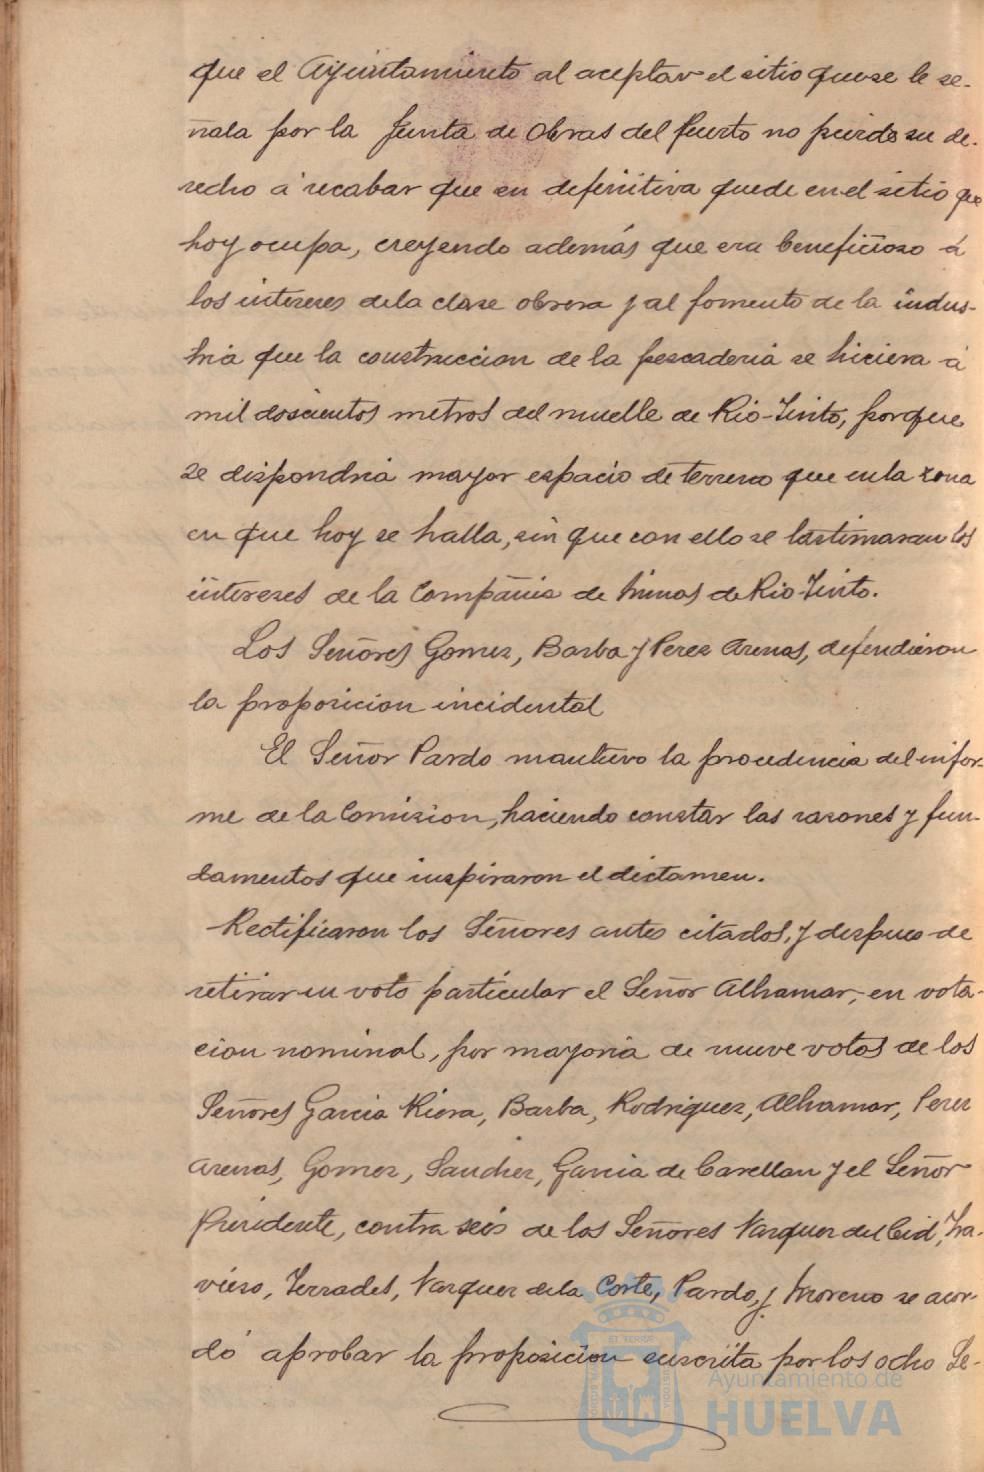 que el Ayuntamiento al aceptar el sitio que se le se-
ñala por la Junta de Obras del Puerto no pierde su de-
recho á recabar que en definitiva quede en el sitio que
hoy ocupa, creyendo además que era beneficioso á
los intereses de la clase obrera y al fomento de la indus-
tria que la construccion de la pescaderia se hiciera á
mil doscientos metros del muelle de Rio-Tinto, porque
se dispondria mayor espacio de terreno que en la zona
en que hoy se halla, sin que con ello se lastimaran los
intereses de la Compañia de Minas de Rio-Tinto.
Los Señores Gomez, Barba y Perez Arenas, defendieron
la proposicion incidental
El Señor Pardo mantuvo la procedencia del infor-
me de la Comision, haciendo constar las razones y fun-
damentos que inspiraron el dictamen.
Rectificaron los Señores antes citados, y despues de
retirar su voto particular el Señor Alhamar, en vota-
cion nominal, por mayoria de nueve votos de los
Señores Garcia Riera, Barba, Rodriguez, Alhamar, Perez
Arenas, Gomez, Sanchez, Garcia de Carellan y el Señor
Presidente, contra seis de los Señores Vazquez del Cid, Tra-
vieso, Terrades, Vazquez de la Corte, Pardo, y Moreno se acor-
dó aprobar la proposicion suscrita por los ocho Se-
Ayuntamiento de
HUELVA